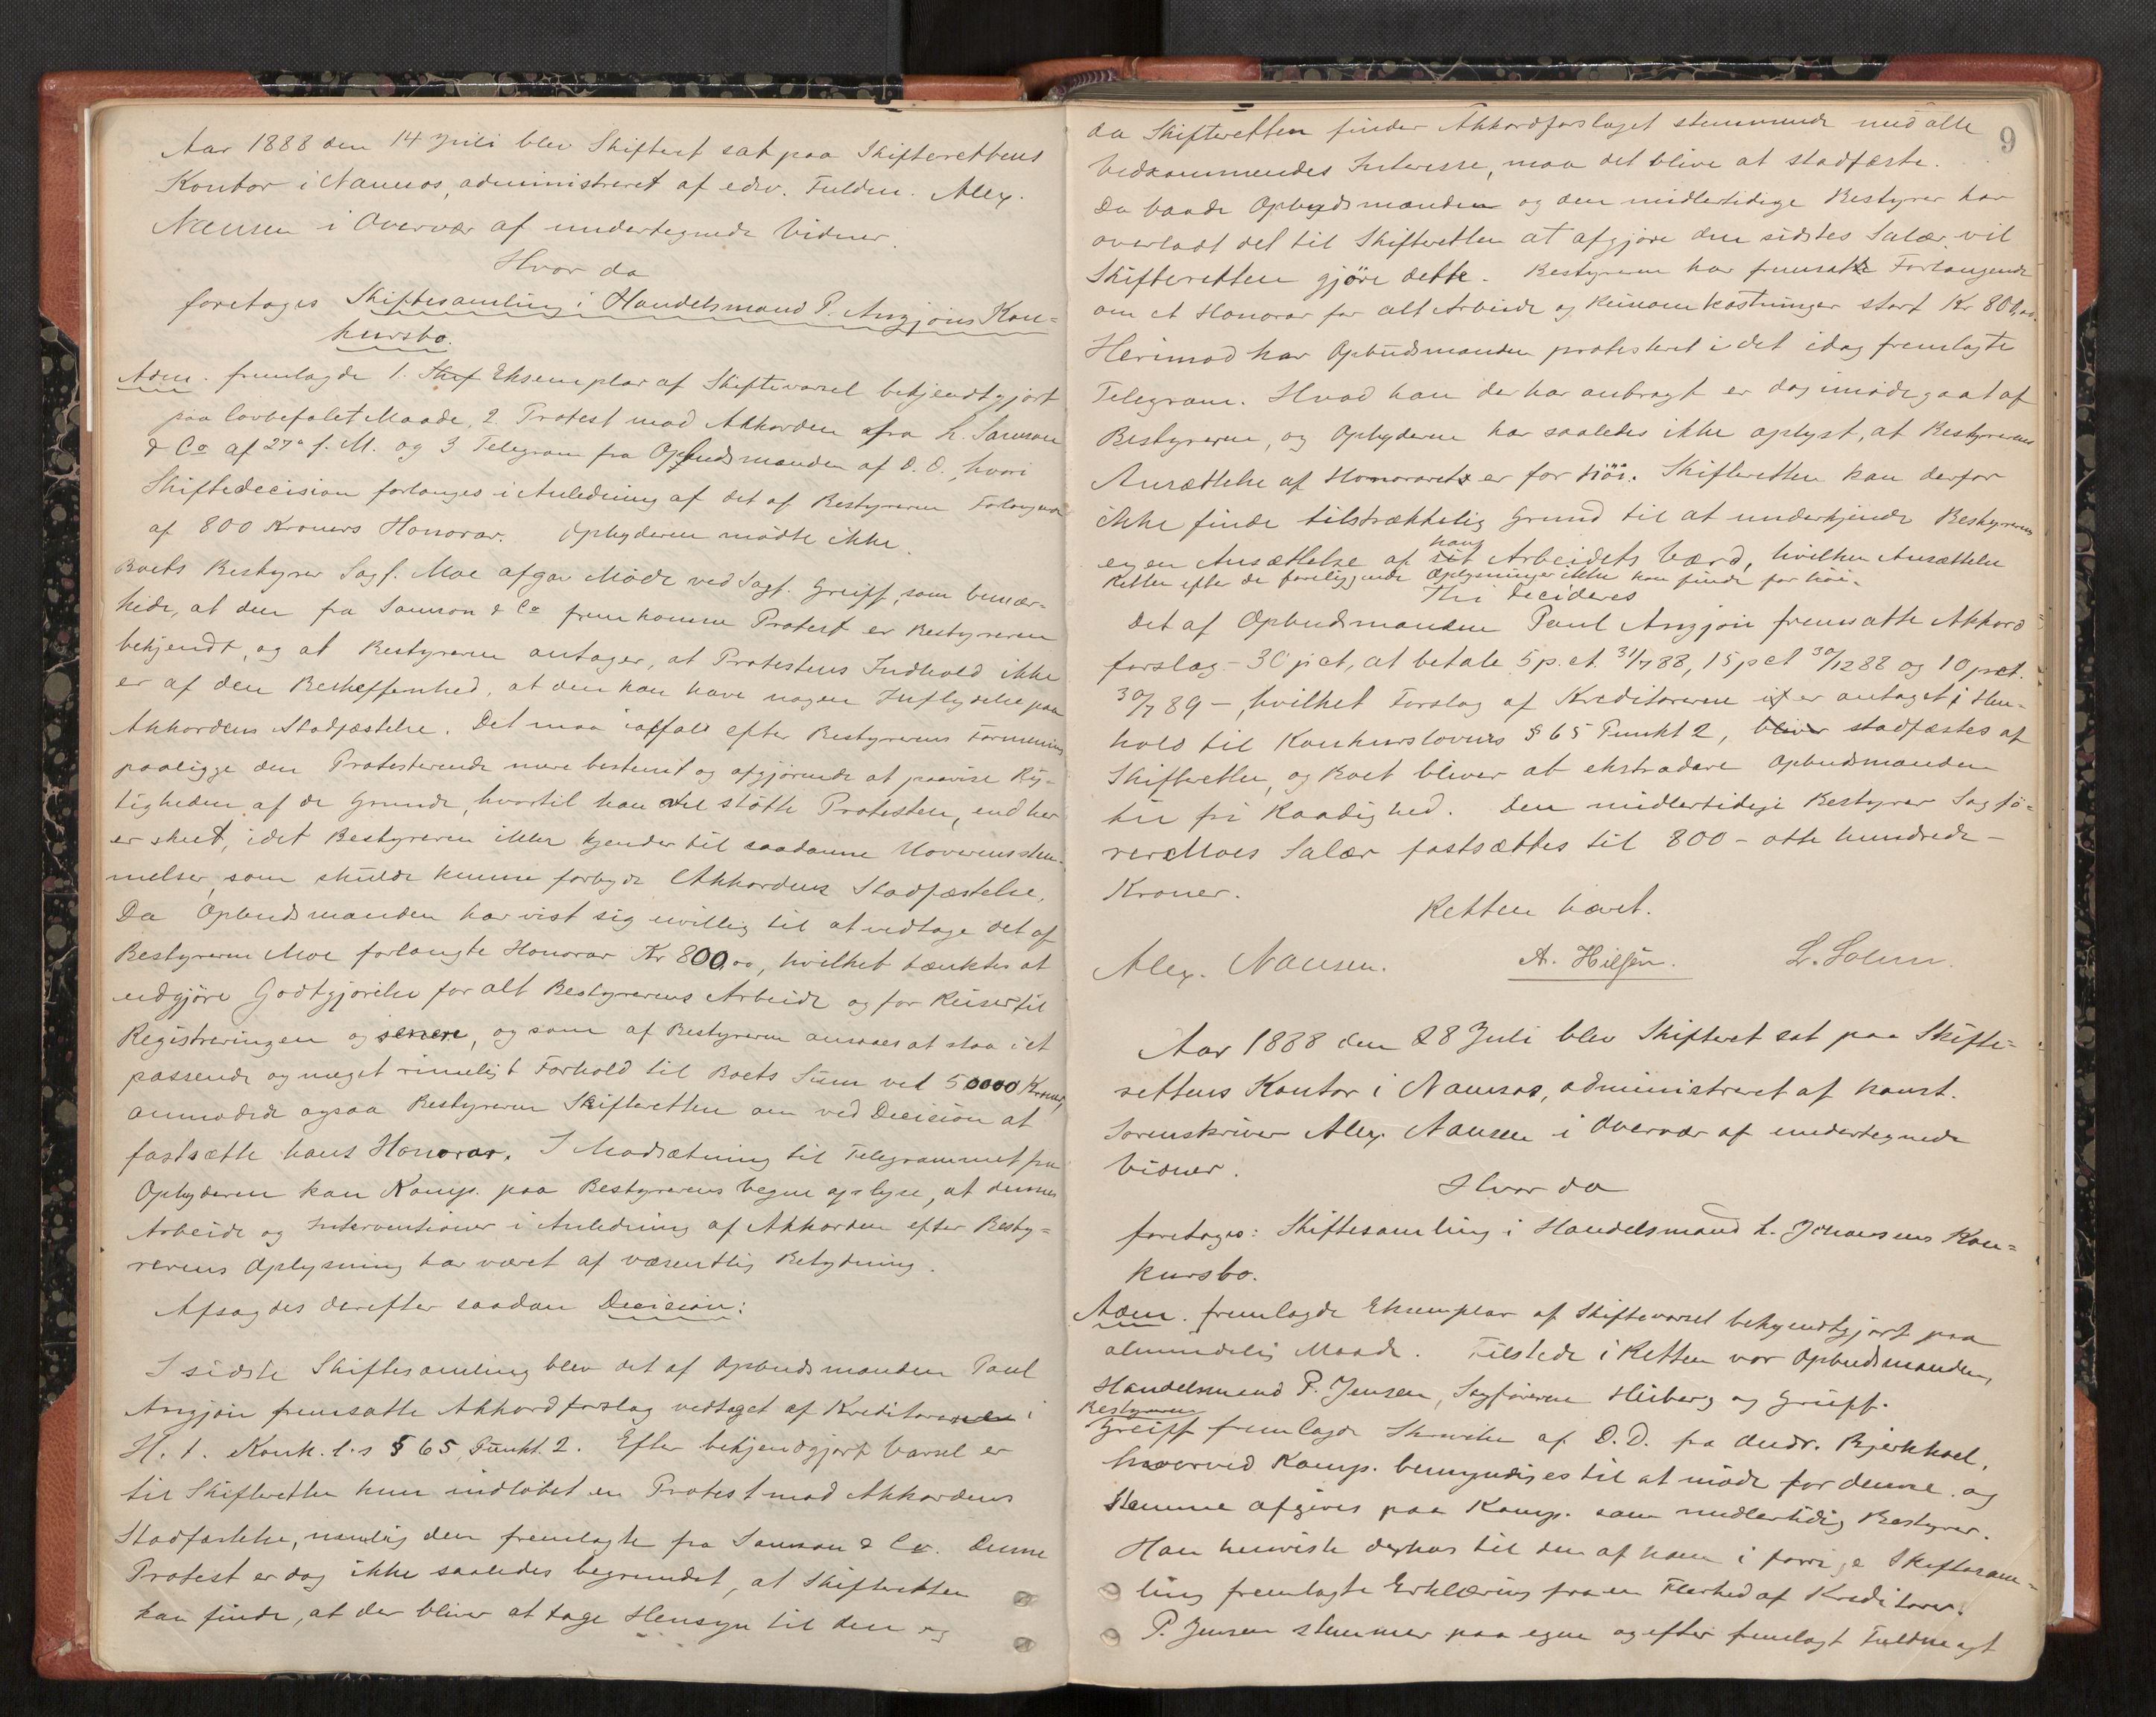 Aar 1888 den 14 Juli blev Skifteret sat paa Skifterettens
Kontor i Namsos, administreret af edsv. Fuldm. Alex.
Nansen i Overvær af undertegnede Vidner.
Hvor da
foretoges Skiftesamling i Handelsmand P. Angjøns Kon-
kursbo.
Adm. fremlagde 1. Skif Eksemplar af Skiftevarsel bekjendtgjort
paa lovbefalet Maade, 2 Protest mod Akkorden fra L. Samson
& Co af 27de f. M. og 3 Telegram fra Opbudsmanden af D. D., hvori
Skiftedecision forlanges i Anledning af det af Bestyreren Forlangende
af 800 Kroners Honorar. Opbyderen mødte ikke.
Boets Bestyrer Sagf. Moe afgav Møde ved Sagf. Greiff, som bemær-
kede, at den fra Samson & Co fremkomne Protest er Bestyreren
bekjendt, og at Bestyreren antager, at Protestens Indhold ikke
er af den Beskaffenhed, at den kan have nogen Indflydelse paa
Akkordens Stadfæstelse. Det maa iaffald efter Bestyrerens Formening
paaligge den Protesterende mere bestemt og afgjørende at paavise Rig-
tigheden af de Grunde, hvortil han vil støtte Protesten, end her
er skeet, idet Bestyreren ikke kjender til saadanne Uoverensstem-
melser, som skulde kunne forbyde Akkordens Stadfæstelse.
Da Opbudsmanden har vist sig uvillig til at vedtage det af
Bestyreren Moe forlangte Honorar Kr 800,00, hvilket tænktes at
udgjøre Godtgjørelse for alt Bestyrerens Arbeide og for Reiser til
Registreringen og senere, og som af Bestyreren ansaaes at staa i et
passende og meget rimeligt Forhold til Boets Sum ved 50000 Kroner,
anmodede ogsaa Bestyreren Skifteretten om ved Decision at
fastsætte hans Honorar. I Modsætning til Telegrammet fra
Opbyderen kan Komp. paa Bestyrerens Vegne oplyse, at dennes
Arbeide og Interventioner i Anledning af Akkorden efter Besty-
rerens Oplysning har været af væsentlig Betydning.
Afsagdes derefter saadan Decision:
I sidste Skiftesamling blev det af Opbudsmanden Paul
Angjøn fremsatte Akkordforslag vedtaget af Kreditorerne i
H. t. Konk. l.s § 65, Punkt. 2. Efter bekjendtgjort Varsel er
til Skifteretten kun indløbet en Protest mod Akkordens
Stadfæstelse, nemlig den fremlagte fra Samson & Co. Denne
Protest er dog ikke saaledes begrundet, at Skifteretten
kan finde, at der bliver at tage Hensyn til den og
9
da Skifteretten finder Akkordforslaget stemmende med alle
Vedkommendes Interesse, maa det blive at stadfæste.
Da baade Opbudsmanden og den midlertidige Bestyrer har
overladt det til Skifteretten at afgjøre den sidstes Salær, vil
Skifteretten gjøre dette. Bestyreren har fremsatte Forlangende
om et Honorar for alt Arbeide og Reiseomkostninger stort Kr 800,00.
Herimod har Opbudsmanden protesteret i det idag fremlagte
Telegram. Hvad han der har anbragt er dog imødegaaet af
Bestyreren, og Opbyderen har saaledes ikke oplyst, at Bestyrerens
Ansættelse af Honoraret er for høi. Skifteretten kan derfor
ikke finde tilstrækkelig Grund til at underkjende Bestyrerens
egen Ansættelse af sit hans Arbeidets Værd, hvilken Ansættelse
Retten efter de foreliggende Oplysninger ikke kan finde for høi.
Thi decideres
Det af Opbudsmanden Paul Angjøn fremsatte Akkord
forslag – 30 pct, at betale 5 p. ct. 31/7 88, 15 pct 30/12 88 og 10 pct.
30/7 89 –, hvilket Forslag af Kreditorerne er antaget i Hen-
hold til Konkurslovens § 65 Punkt 2, bliver stadfæstes af
Skifteretten, og Boet bliver at ekstradere Opbudsmanden
til fri Raadighed. Den midlertidige Bestyrer Sagfø-
rer Moes Salær fastsættes til 800 – otte hundrede –
Kroner.
Retten hævet.
Alex. Nansen. A. Hilsen. L. Solum.
Aar 1888 den 28 Juli blev Skifteret sat paa Skifte-
rettens Kontor i Namsos, administreret af konst.
Sorenskriver Alex. Nansen i Overvær af undertegnede
Vidner.
Hvor da
foretoges: Skiftesamling i Handelsmand L. Johansens Kon-
kursbo.
Adm. fremlagde Eksemplar af Skiftevarsel bekjendtgjort paa
almindelig Maade. Tilstede i Retten var Opbudsmanden,
Handelsmand P. Jensen, Sagførerne Heiberg og Greiff.
Bestyreren
Greiff fremlagde Skrivelse af D. D. fra Andr. Bjerkhoel,
hvorved Komp. bemyndiges til at møde for denne og
Stemme afgives paa Komp. som midlertidig Bestyrer.
Han henviste derhos til den af ham i forrige Skiftesam-
ling fremlagte Erklæring fra en Flerhed af Kreditorer.
P. Jensen stemmer paa egne og efter fremlagt Fuldmagt